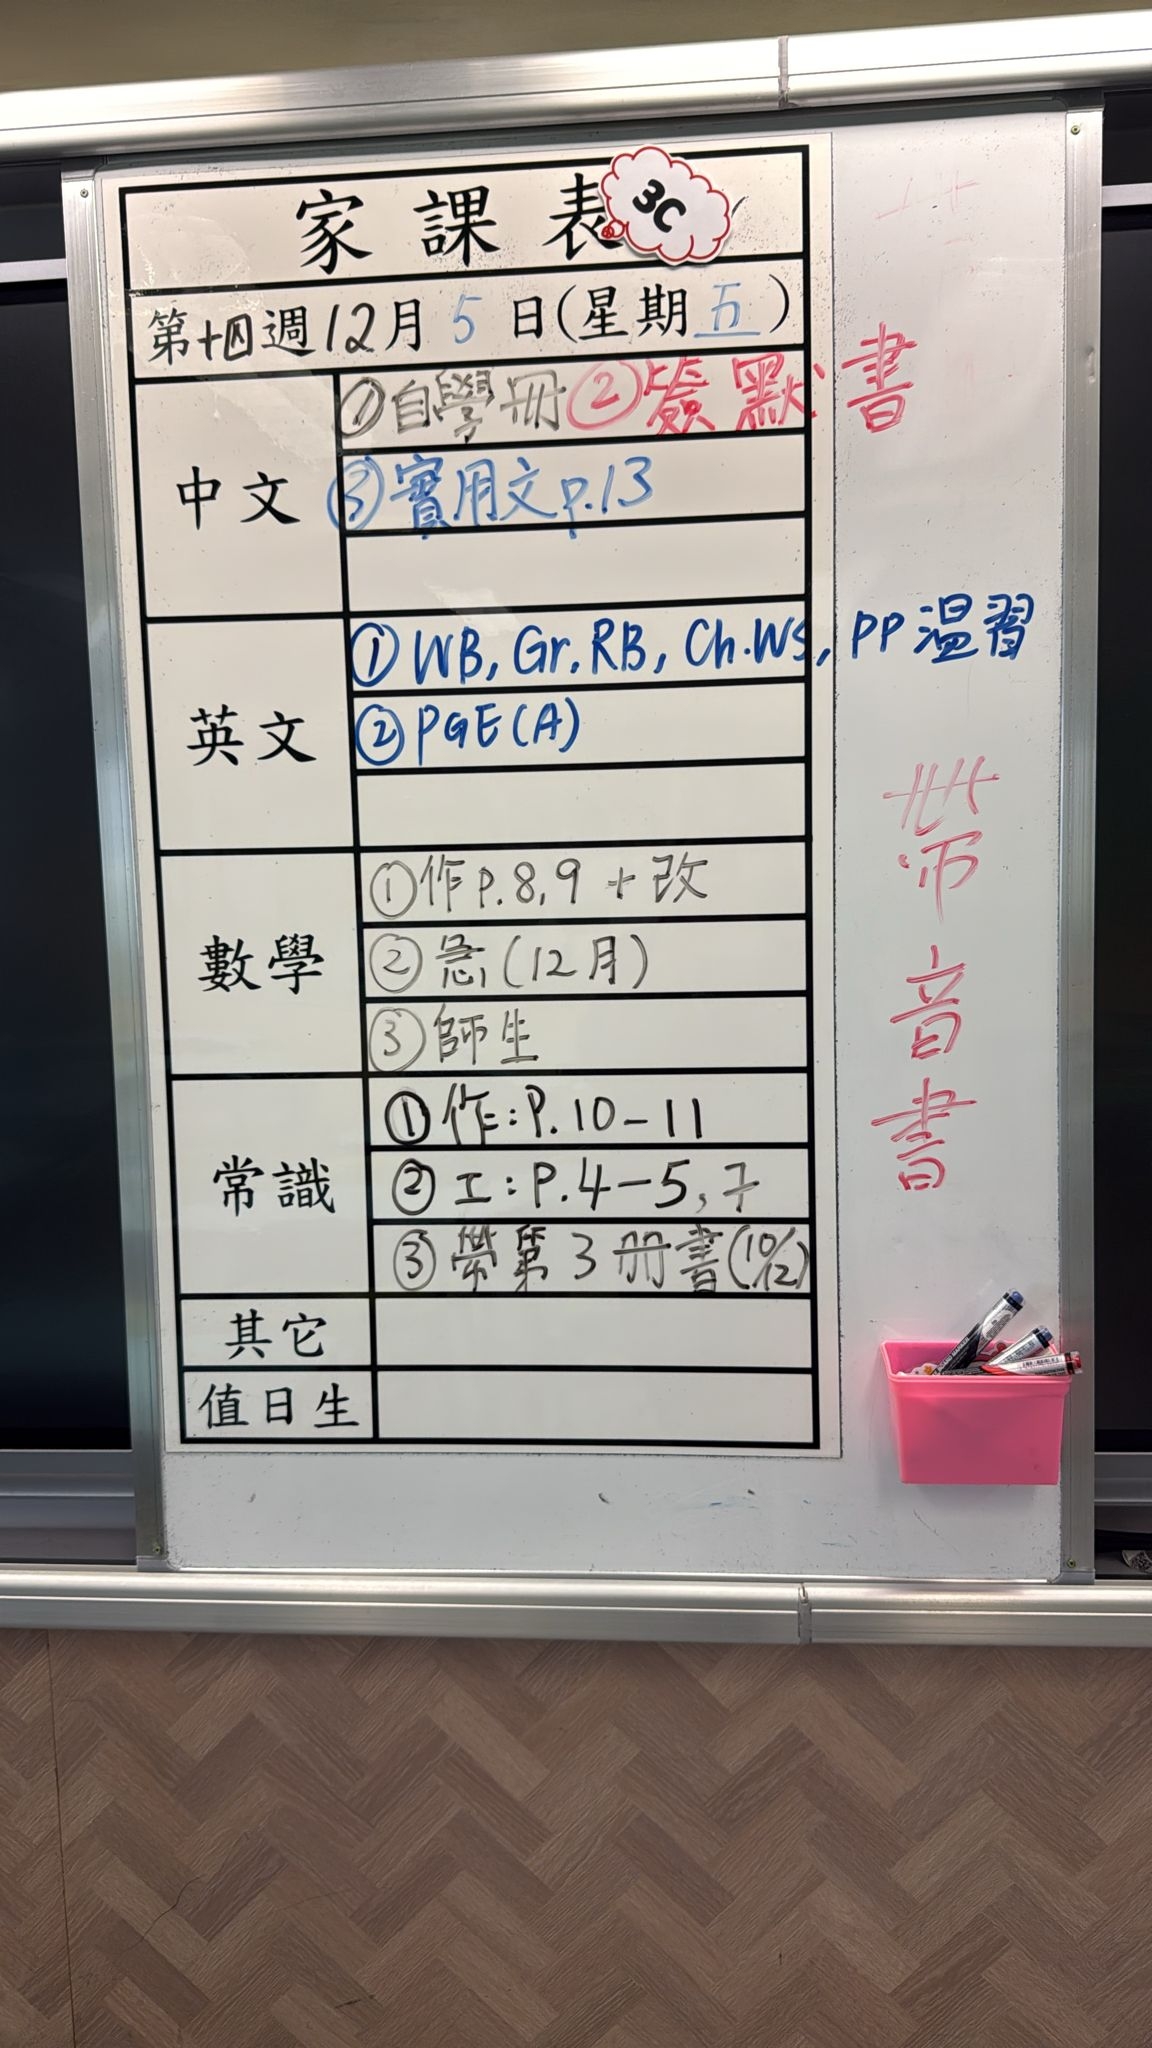 家課表 3C
第十四週12月5日(星期五)
中文
①自學冊②簽默書
③實用文p.13
英文
①WB, Gr.RB, Ch.WS, PP溫習
②PGE(A)
數學
①作p.8,9+改
②急(12月)
③師生
常識
①作:P.10-11
②工:P.4-5,7
③帶第3冊書(10/12)
其它
值日生
帶音書